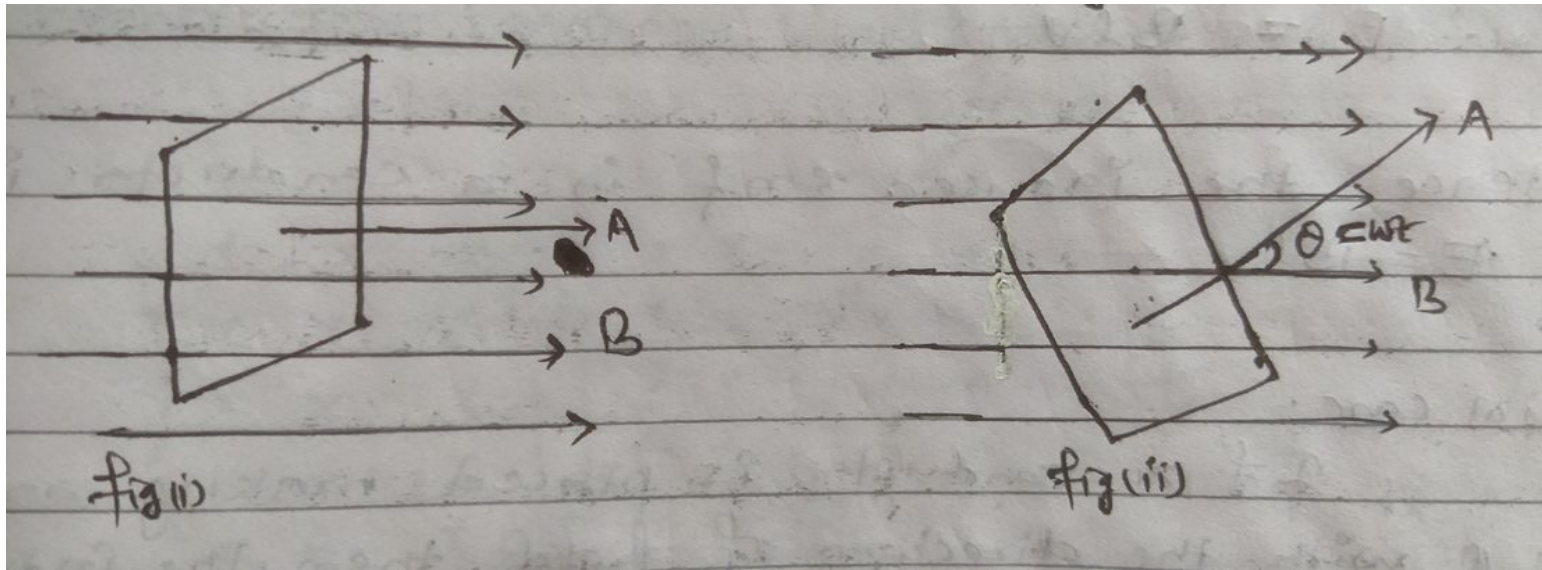 A
B
fig(i)
A
θ = wt
B
fig(ii)